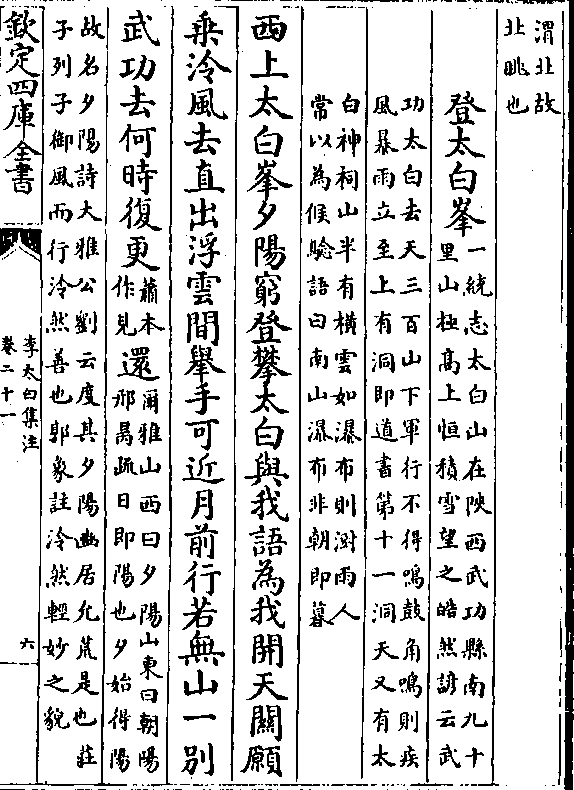 渭北故
北眺也
登太白峯一統志太白山在陜西武功縣南九十
里山極髙上恒積雪望之皓然諺云武
功太白去天三百山下軍行不得鳴鼓角鳴則疾
風暴雨立至上有洞即道書第十一洞天又有太
白神祠山半有横雲如瀑布則澍雨人
常以為候驗語曰南山瀑布非朝即暮
西上太白峯夕陽窮登攀太白與我語為我開天關願
乘泠風去直出浮雲間舉手可近月前行若無山一别
武功去何時復更蕭本
作見還爾雅山西曰夕陽山東曰朝陽
邢昺疏日即陽也夕始得陽
故名夕陽詩大雅公劉云度其夕陽豳居允荒是也莊
子列子御風而行泠然善也郭象註泠然輕妙之貌
欽定四庫全書
李太白集注
卷二十一
六